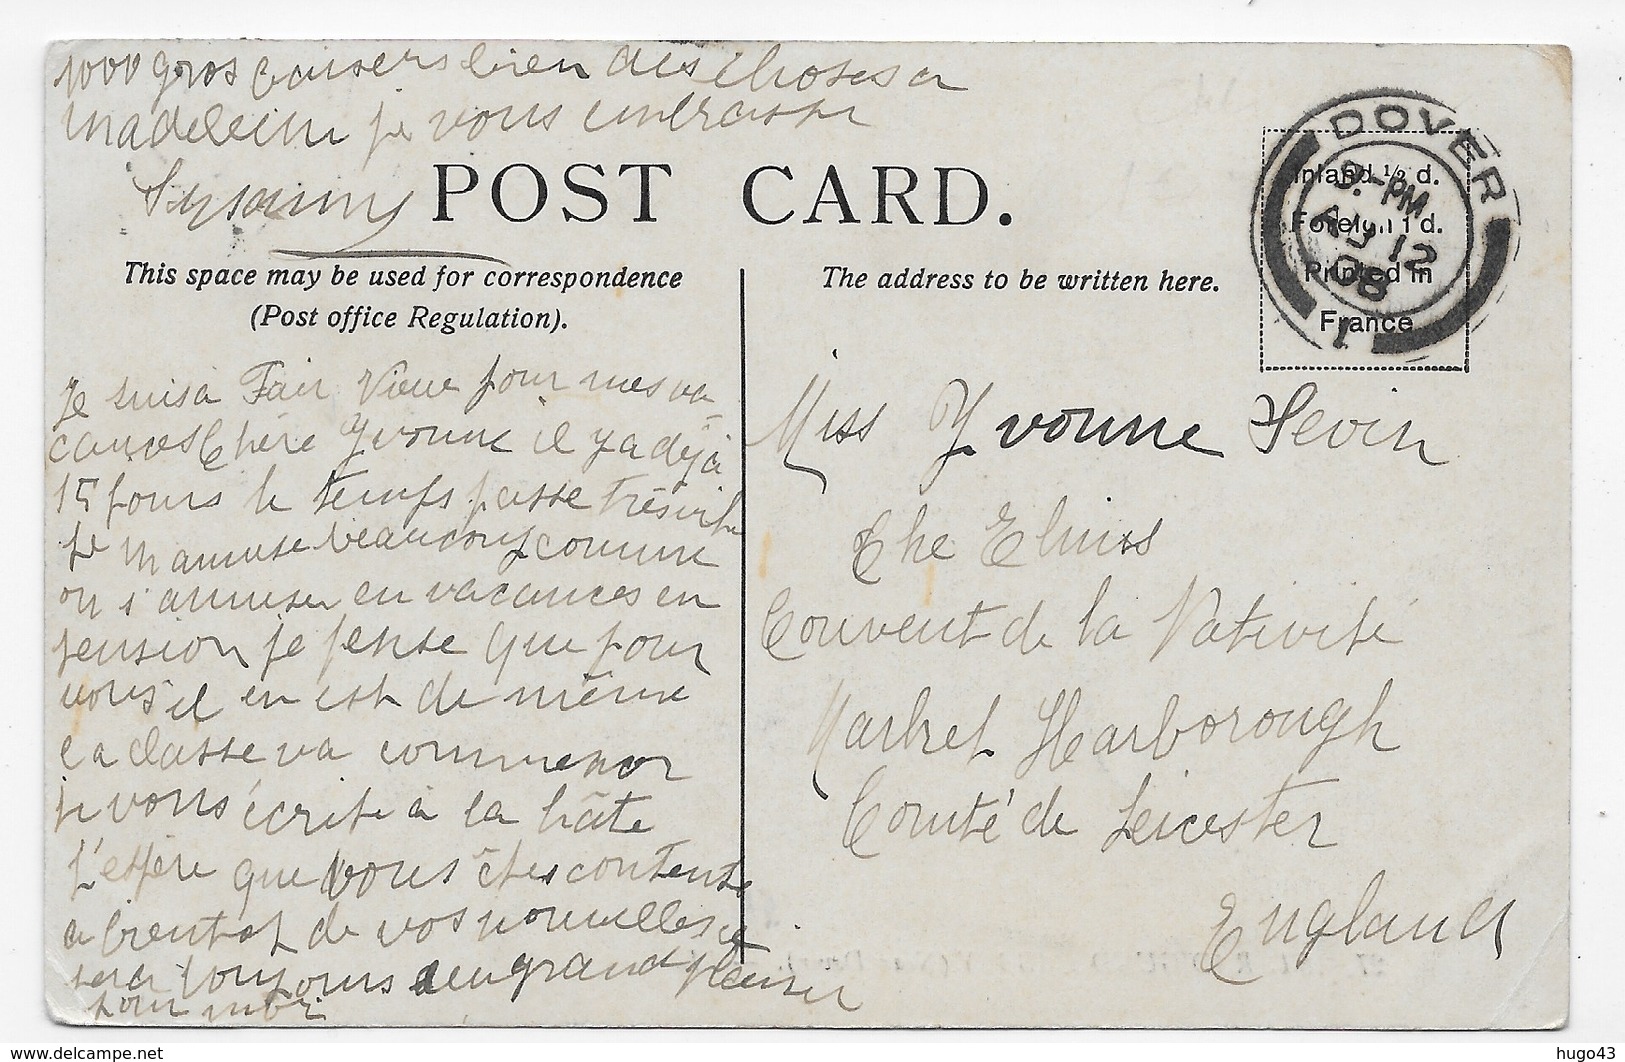 1000 gros baisers bien des choses a
Madeleine je vous embrasse
Suzanne
POST CARD.
This space may be used for correspondence
(Post office Regulation).
The address to be written here.
Inland ½ d.
Foreign 1 d.
Printed in
France
DOVER
9-PM
AU 12
08
1
Je suis a Fair View pour mes va-
cances Chère Yvonne il y a déjà
15 jours le temps passe très vite
je m'amuse beaucoup comme
on s'amuse en vacances en
pension je pense que pour
vous il en est de même
la classe va commencer
je vous écrit à la hâte
j'espère que vous êtes contente
a bientot de vos nouvelles ce
sera toujours un grand plaisir
pour moi
Miss Yvonne Sevin
The Elms
Couvent de la Nativité
Market Harborough
Comté de Leicester
England
hugo43
www.delcampe.net